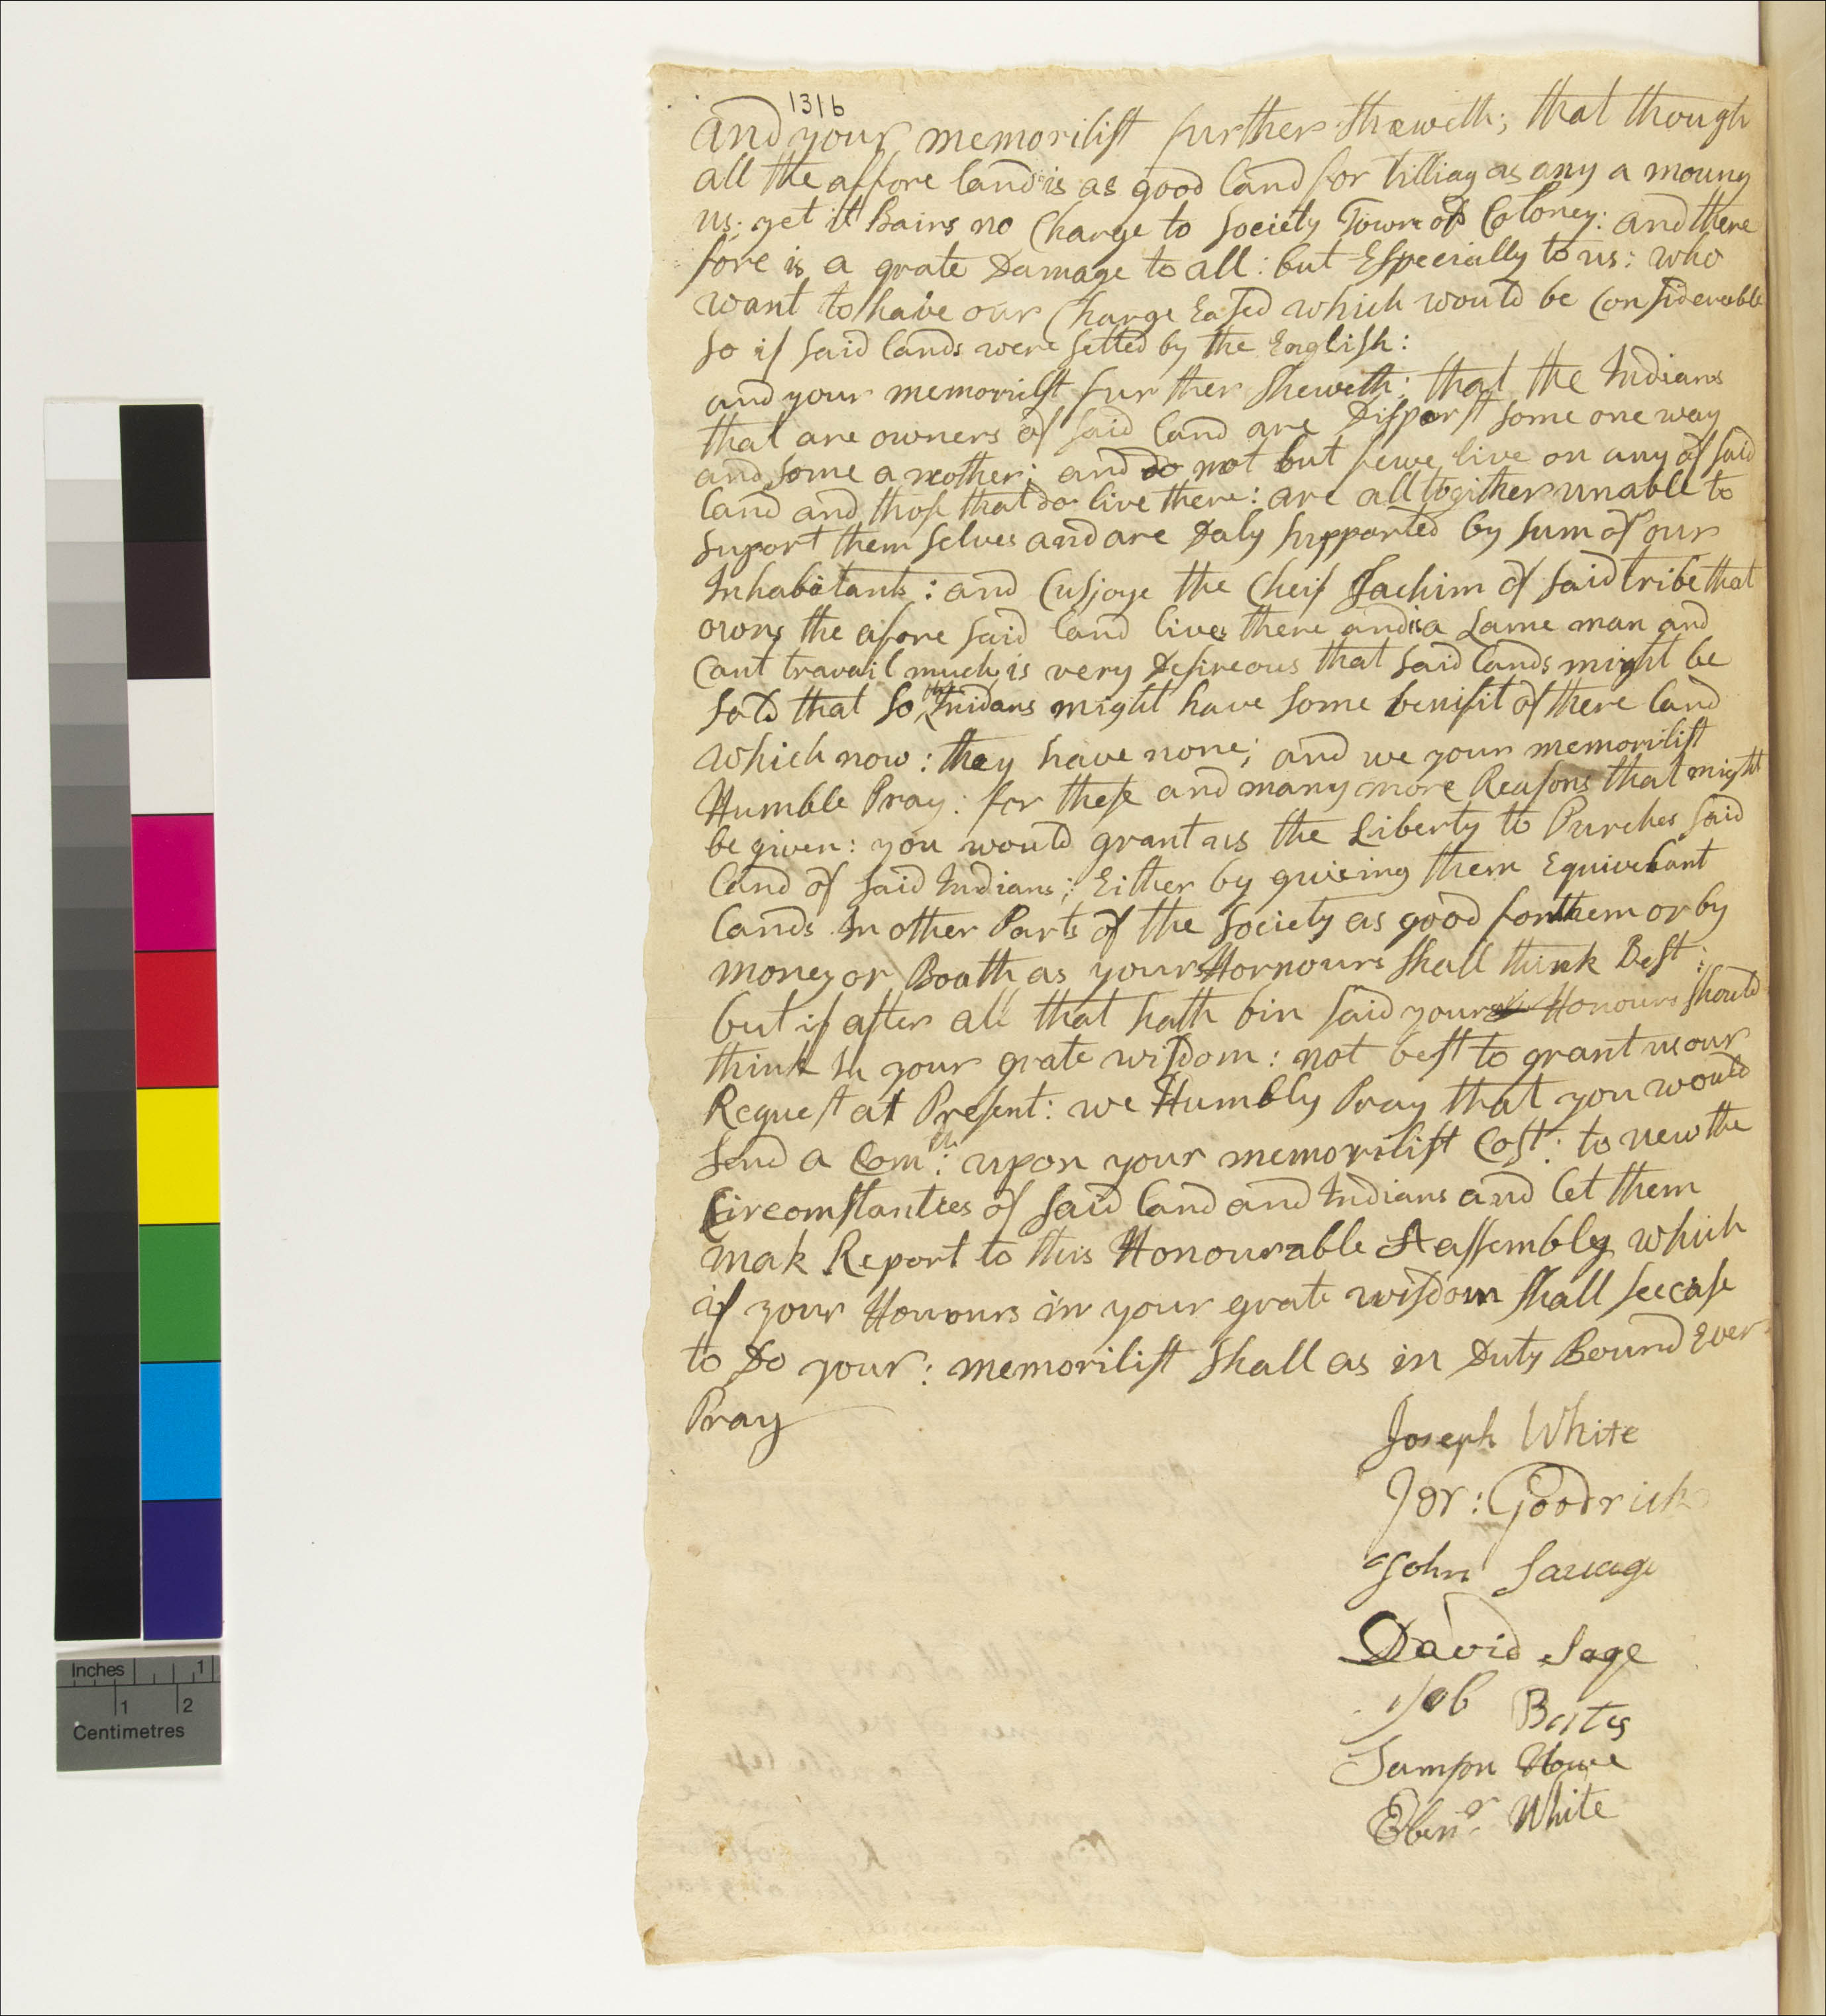 131b
and your memorilist further sheweth; that though
all the affore land is as good land for tilliag as any a moung
us: yet it Bairs no Charge to Society Town or Coloney: and there
fore is a grate Damage to all: but Especially to us: who
want to have our Charge Eased which would be Considerable
so if said lands were setled by the English:
and your memorilst further sheweth: that the Indians
that are owners of said land are Disporst some one way
and some a nother: and do not but fewe live on any of said
land and those that do live there: are alltogither unable to
suport them selves and are Daly supported by sum of our
Inhabitants: and Cusjoye the Cheif Sachim of said tribe that
owns the afore said land lives there and is a Lame man and
Cant travail much is very Desireous that said lands might be
sold that so the Inidans might have some benifit of there land
which now: they have none; and we your memorilist
Humble Pray: for these and many more Reasons that might
be given: you would grant us the Liberty to Purches said
land of said Indians; Either by giveing them Equivelant
lands In other Parts of the Society as good for them or by
money or Boath as yours Hornours shall think Best:
but if after all that hath bin said your Honours should
think In your grate wisdom: not best to grant us our
Request at Present: we Humbly Pray that you would
send a Com:tt upon your memorilist Cost: to vew the
Circomstanties of said land and Indians and let them
mak Report to this Honourable A assembly which
if your Honours in your grate wisdom shall see case
to Do your: memorilist shall as in Duty Bound Ever
Pray
Joseph White
Jer: Goodrich
John Savage
David Sage
Job Bates
Samson Howe
Eben:r White
Inches 1
1 2
Centimetres